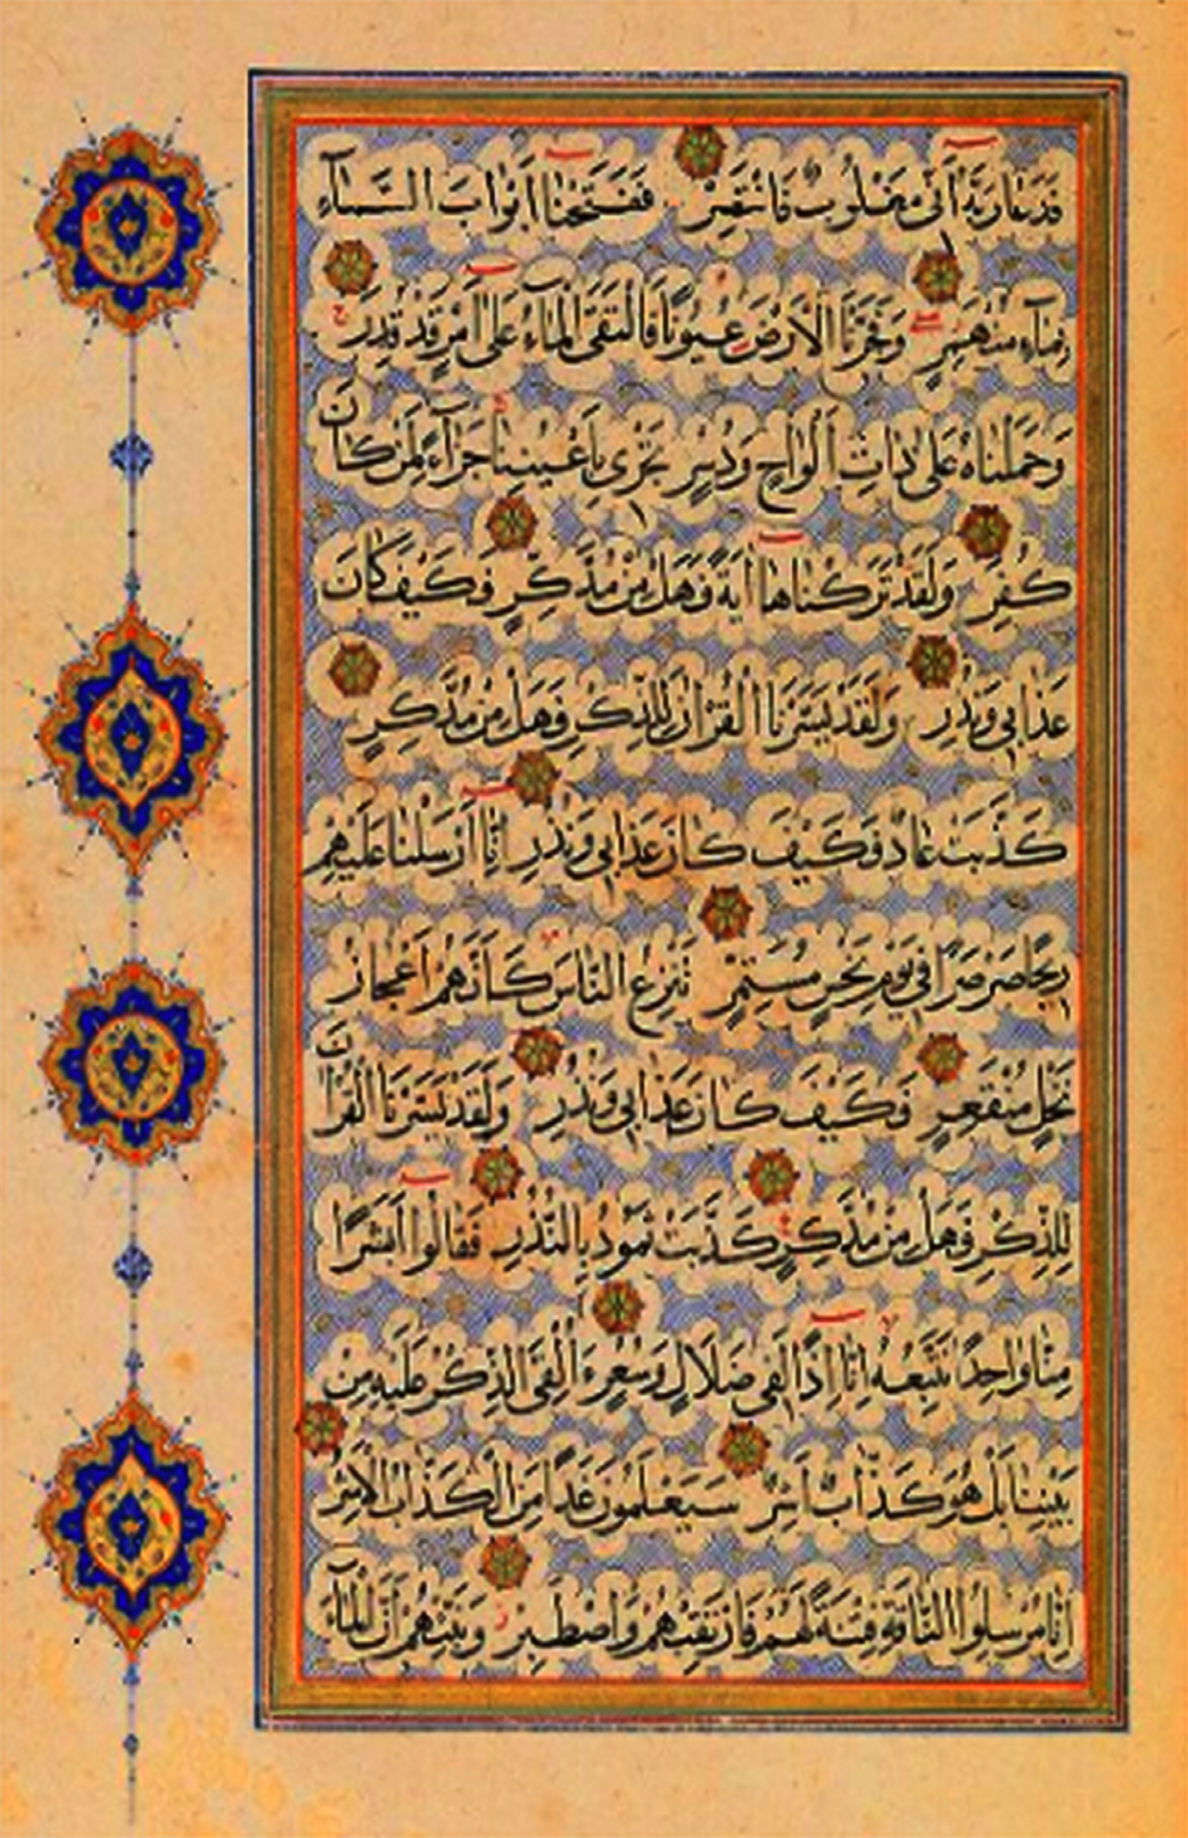 فَدَعَا رَبَّهُ أَنِّى مَغْلُوبٌ فَانْتَصِرْ فَفَتَحْنَا أَبْوَابَ السَّمَآءِ
بِمَآءٍ مُنْهَمِرٍ وَفَجَّرْنَا الْأَرْضَ عُيُونًا فَالْتَقَى الْمَآءُ عَلَى أَمْرٍ قَدْ قُدِرَ
وَحَمَلْنَاهُ عَلَى ذَاتِ أَلْوَاحٍ وَدُسُرٍ تَجْرِى بِأَعْيُنِنَا جَزَآءً لِمَنْ كَانَ
كُفِرَ وَلَقَدْ تَرَكْنَاهَا آيَةً فَهَلْ مِنْ مُدَّكِرٍ فَكَيْفَ كَانَ
عَذَابِى وَنُذُرِ وَلَقَدْ يَسَّرْنَا الْقُرْآنَ لِلذِّكْرِ فَهَلْ مِنْ مُدَّكِرٍ
كَذَّبَتْ عَادٌ فَكَيْفَ كَانَ عَذَابِى وَنُذُرِ إِنَّا أَرْسَلْنَا عَلَيْهِمْ
رِيحًا صَرْصَرًا فِى يَوْمِ نَحْسٍ مُسْتَمِرٍّ تَنْزِعُ النَّاسَ كَأَنَّهُمْ أَعْجَازُ
نَخْلٍ مُنْقَعِرٍ فَكَيْفَ كَانَ عَذَابِى وَنُذُرِ وَلَقَدْ يَسَّرْنَا الْقُرْآنَ
لِلذِّكْرِ فَهَلْ مِنْ مُدَّكِرٍ كَذَّبَتْ ثَمُودُ بِالنُّذُرِ فَقَالُوا أَبَشَرًا
مِنَّا وَاحِدًا نَتَّبِعُهُ إِنَّا إِذًا لَفِى ضَلَالٍ وَسُعُرٍ ءَأُلْقِىَ الذِّكْرُ عَلَيْهِ مِنْ
بَيْنِنَا بَلْ هُوَ كَذَّابٌ أَشِرٌ سَيَعْلَمُونَ غَدًا مَنِ الْكَذَّابُ الْأَشِرُ
إِنَّا مُرْسِلُوا النَّاقَةِ فِتْنَةً لَهُمْ فَارْتَقِبْهُمْ وَاصْطَبِرْ وَنَبِّئْهُمْ أَنَّ الْمَآءَ